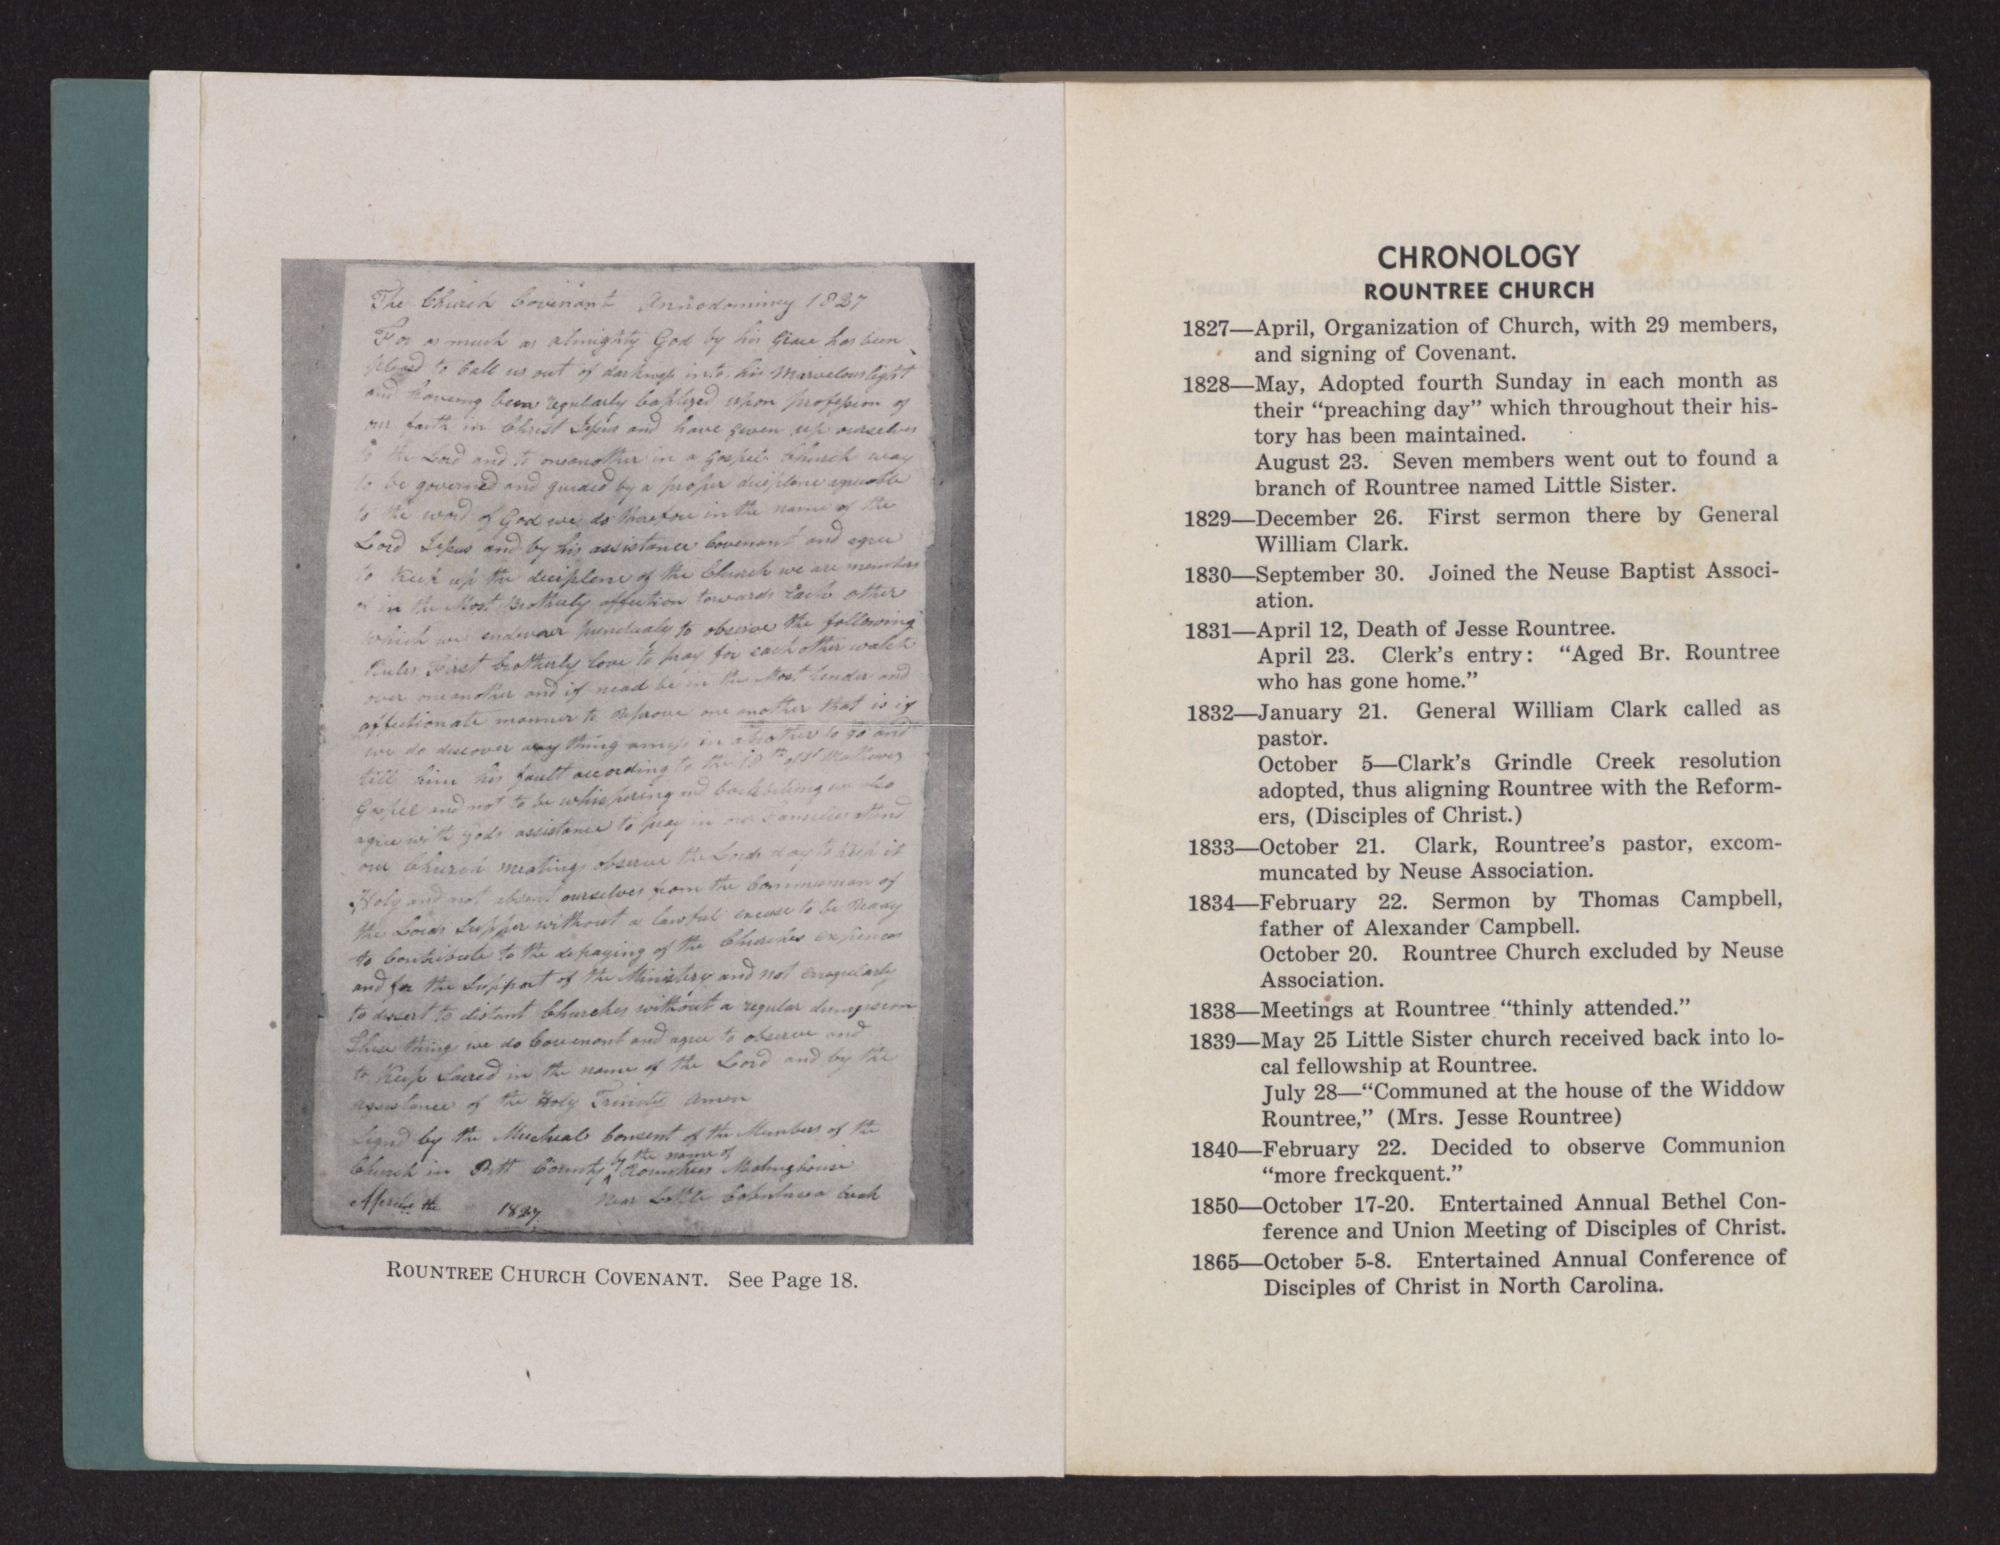 The Church Covenant Annodominey 1827
For as much as almighty God by his Grace has been
pleased to Call us out of darkness into his Marvelous light
and haveing been regularly baptized upon profession of
our faith in Christ Jesus and have given up ourselves
to the Lord and to oneanother in a Gospel Church way
to be governed and guided by a proper disciplene agreable
to the word of God we do therefore in the name of the
Lord Jesus and by his assistance Covenant and agree
to Keep up the deciplene of the Church we are members
of in the Most Brotherly affection towards Each other
which we endevour punctualy to observe the following
Rules First brotherly love to pray for each other watch
over oneanother and if nead be in the Most tender and
affectionate manner to Reprove one another that is if
we do discover any thing amiss in a brother to go and
tell him his fault according to the 18th of St Mathews
Gospel and not to be whispering and backbiting we also
agree with gods assistance to pray in our Families attend
our Church meatings observe the Lords day to Keep it
Holy and not absent ourselves from the Communion of
the Lords Supper without a lawful excuse to be Ready
to Contribute to the defraying of the Churches expences
and for the Support of the Ministery and not erregularly
to dessert to distant Churches without a regular
These things we do Covenant and agree to observe and
to Keep Sacred in the name of the Lord and by the
assistance of the Holy Trinity Amen
Signd by the Muctual Consent of the Members of the
Church in Pitt County by the name of Rountrees Meatinghouse
April the 1827 Near Little Creek
ROUNTREE CHURCH COVENANT. See Page 18.
CHRONOLOGY
ROUNTREE CHURCH
1827—April, Organization of Church, with 29 members,
and signing of Covenant.
1828—May, Adopted fourth Sunday in each month as
their “preaching day” which throughout their his-
tory has been maintained.
August 23. Seven members went out to found a
branch of Rountree named Little Sister.
1829—December 26. First sermon there by General
William Clark.
1830—September 30. Joined the Neuse Baptist Associ-
ation.
1831—April 12, Death of Jesse Rountree.
April 23. Clerk’s entry: “Aged Br. Rountree
who has gone home.”
1832—January 21. General William Clark called as
pastor.
October 5—Clark’s Grindle Creek resolution
adopted, thus aligning Rountree with the Reform-
ers, (Disciples of Christ.)
1833—October 21. Clark, Rountree’s pastor, excom-
muncated by Neuse Association.
1834—February 22. Sermon by Thomas Campbell,
father of Alexander Campbell.
October 20. Rountree Church excluded by Neuse
Association.
1838—Meetings at Rountree “thinly attended.”
1839—May 25 Little Sister church received back into lo-
cal fellowship at Rountree.
July 28—“Communed at the house of the Widdow
Rountree,” (Mrs. Jesse Rountree)
1840—February 22. Decided to observe Communion
“more freckquent.”
1850—October 17-20. Entertained Annual Bethel Con-
ference and Union Meeting of Disciples of Christ.
1865—October 5-8. Entertained Annual Conference of
Disciples of Christ in North Carolina.